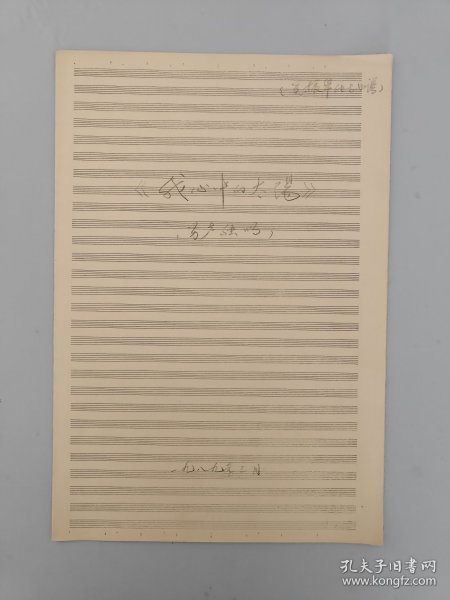 《我心中的太陽》
（男声独唱）
一九八九年三月
孔夫子旧书网
www.kongfz.com